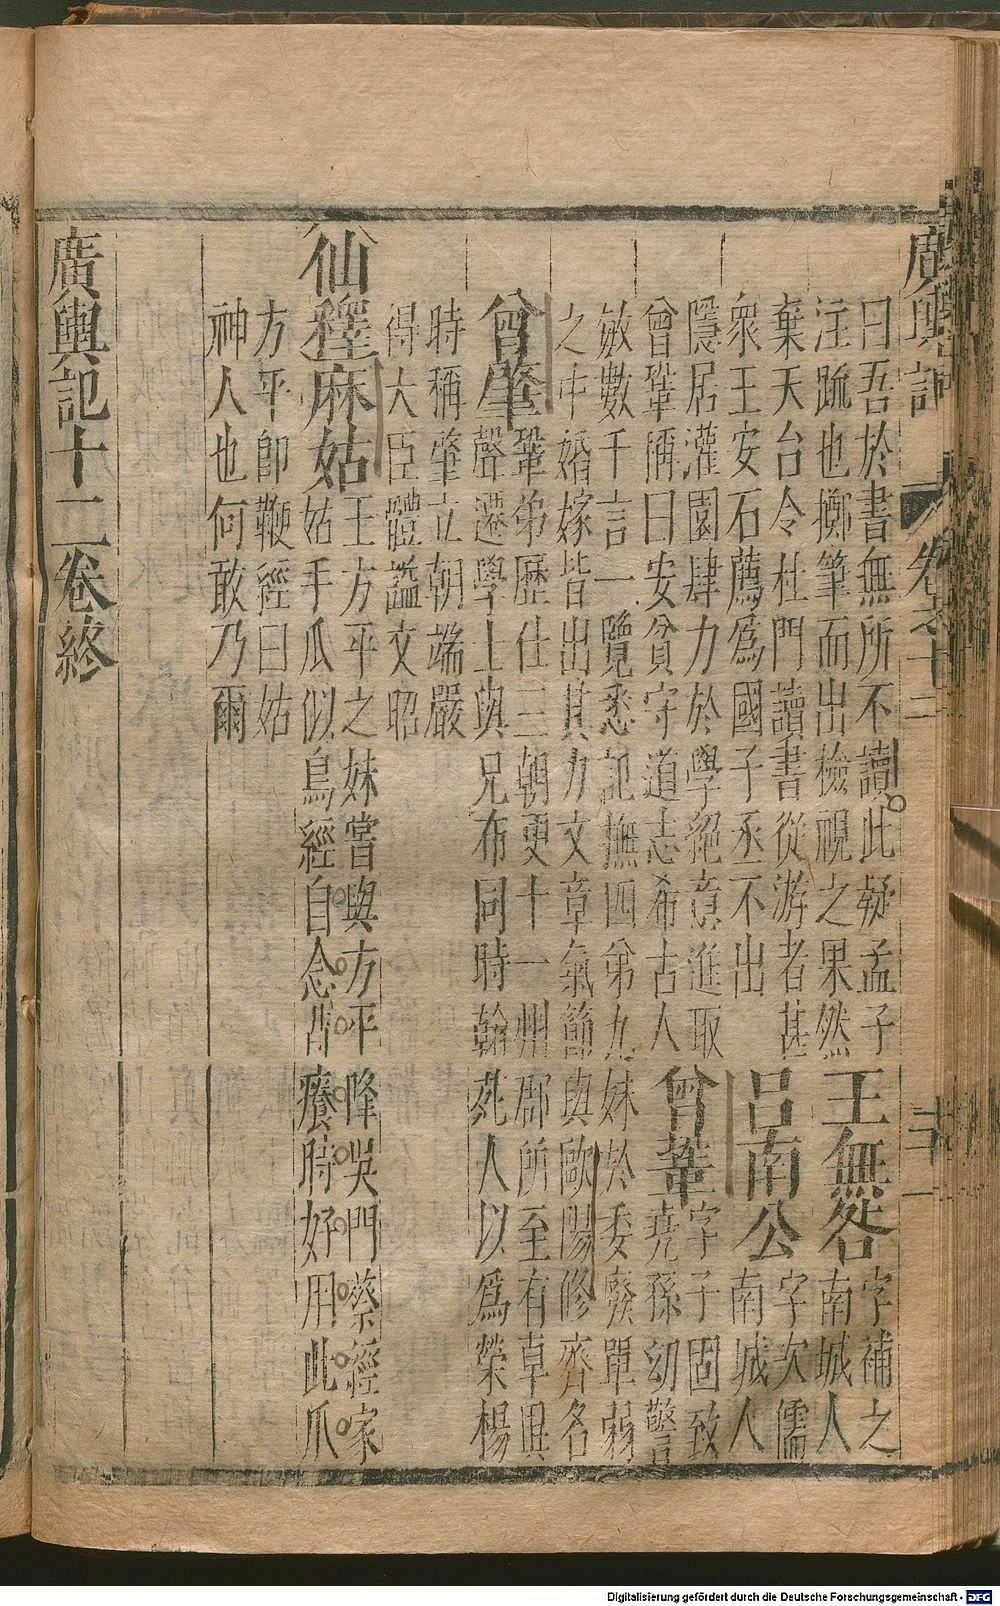 廣輿記 卷之十二
曰吾於書無所不讀此疑孟子
注䟽也擲筆而出檢視之果然
王無咎
字補之
南城人
棄天台令杜門讀書從游者甚
眾王安石薦爲國子丞不出
呂南公
字次儒
南城人
隱居灌園肆力於學絕意進取
曾鞏稱曰安貧守道志希古人
曾鞏
字子固致
堯孫幼警
敏數千言一覽悉記撫四弟九妹於委廢單弱
之中婚嫁皆出其力文章氣節與歐陽修齊名
曾肇
鞏弟歷仕三朝更十一州郡所至有卓異
聲遷學士與兄布同時翰苑人以爲榮楊
時稱肇立朝端嚴
得大臣體謚文昭
仙釋麻姑
王方平之妹嘗與方平降吳門蔡經家
姑手瓜似鳥經自念背癢時好用此爪
方平即鞭經曰姑
神人也何敢乃爾
廣輿記十二卷終
Digitalisierung gefördert durch die Deutsche Forschungsgemeinschaft - DFG